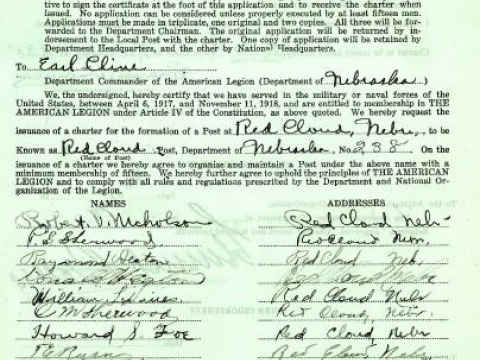 tive to sign the certificate at the foot of this application and to receive the charter when
issued. No application can be considered unless properly executed by at least fifteen men.
Applications must be made in triplicate, one original and two copies. All three will be for-
warded to the Department Chairman. The original application will be returned by in-
dorsement to the Local Post with the charter. One copy of application will be retained by
Department Headquarters, and the other by National Headquarters.
To Earl Cline
Department Commander of the American Legion (Department of Nebraska)
We, the undersigned, hereby certify that we have served in the military or naval forces of the
United States, between April 6, 1917, and November 11, 1918, and are entitled to membership in THE
AMERICAN LEGION under Article IV of the Constitution, as above quoted. We hereby request the
issuance of a charter for the formation of a Post at Red Cloud, Nebr., to be
Known as Red Cloud Post, Department of Nebraska, No. 238. On the
(Name of Post)
issuance of a charter we hereby agree to organise and maintain a Post under the above name with a
minimum membership of fifteen. We hereby further agree to uphold the principles of THE AMERICAN
LEGION and to comply with all rules and regulations prescribed by the Department and National Or-
ganization of the Legion.
NAMES ADDRESSES
Robert V. Nicholson Red Cloud Nebr.
Sherwood Red Cloud Nebr.
Raymond Red Cloud Neb.
William Red Cloud Nebr
C M Sherwood Red Cloud, Nebr.
Howard S. Foe Red Cloud, Nebr
Red Cloud Nebr.